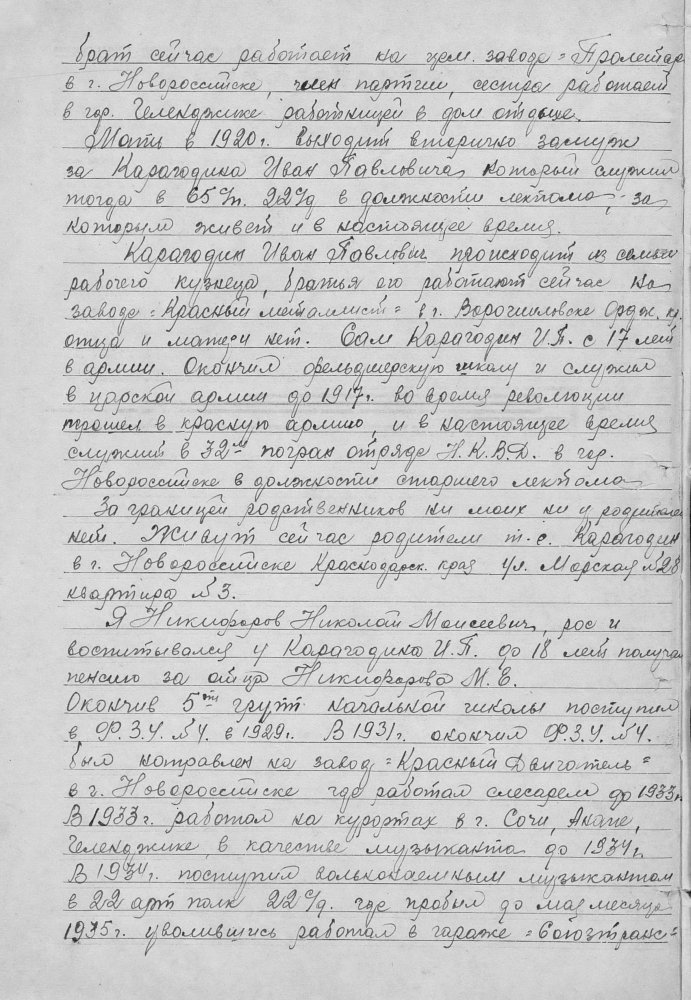 брат сейчас работает на цем. заводе "Пролетар
в г. Новороссийске, член партии, сестра работает
в гор. Геленджике работницей в дом отдыхе.
Мать в 1920 г. выходит вторично замуж
за Карагодина Иван Павловича, который служил
тогда в 65 с/п. 22 с/д в должности лекпома, за
которым живет и в настоящее время.
Карагодин Иван Павлович происходит из семьи
рабочего кузнеца, братья его работают сейчас на
заводе "Красный металлист" в г. Ворошиловске Ордж. кр.
отца и матери нет. Сам Карагодин И.П. с 17 лет
в армии. Окончил фельдшерскую школу и служил
в царской армии до 1917 г. во время революции
прошел в красную армию, и в настоящее время
служит в 32м погран отряде Н.К.В.Д. в гор.
Новороссийске в должности старшего лекпома
За границей родственников ни моих ни у родителей
нет. Живут сейчас родители т.е. Карагодин
в г. Новороссийске Краснодарск. края ул. Морская №28
квартира №3.
Я Никифоров Николай Моисеевич, рос и
воспитывался у Карагодина И.П. до 18 лет получал
пенсию за отца Никифорова М.Е.
Окончив 5ти групп начальной школы поступил
в Ф.З.У. №4. в 1929 г. В 1931 г. окончил Ф.З.У. №4.
был направлен на завод "Красный Двигатель"
в г. Новороссийске где работал слесарем до 1933 г.
В 1933 г. работал на курортах в г. Сочи, Анапе,
Геленджике, в качестве музыканта до 1934 г.
В 1934 г. поступил вольнонаемным музыкантом
в 22 арт полк 22 с/д. где пробыл до мая месяца
1935 г. уволившись работал в гараже "Союзтранс"